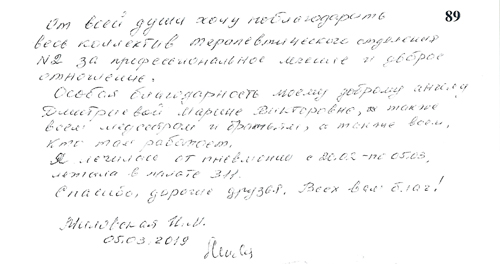 89
От всей души хочу поблагодарить
весь коллектив терапевтического отделения
№2 за профессиональное лечение и доброе
отношение.
Особая благодарность моему доброму ангелу
Дмитриевой Марине Викторовне, а также
всем медсестрам и братьям, а также всем,
кто там работает.
Я лечилась от пневмонии с 20.02 - по 05.03,
лежала в палате 311.
Спасибо, дорогие друзья. Всех вам благ!
Жиловская И.И.
05.03.2019